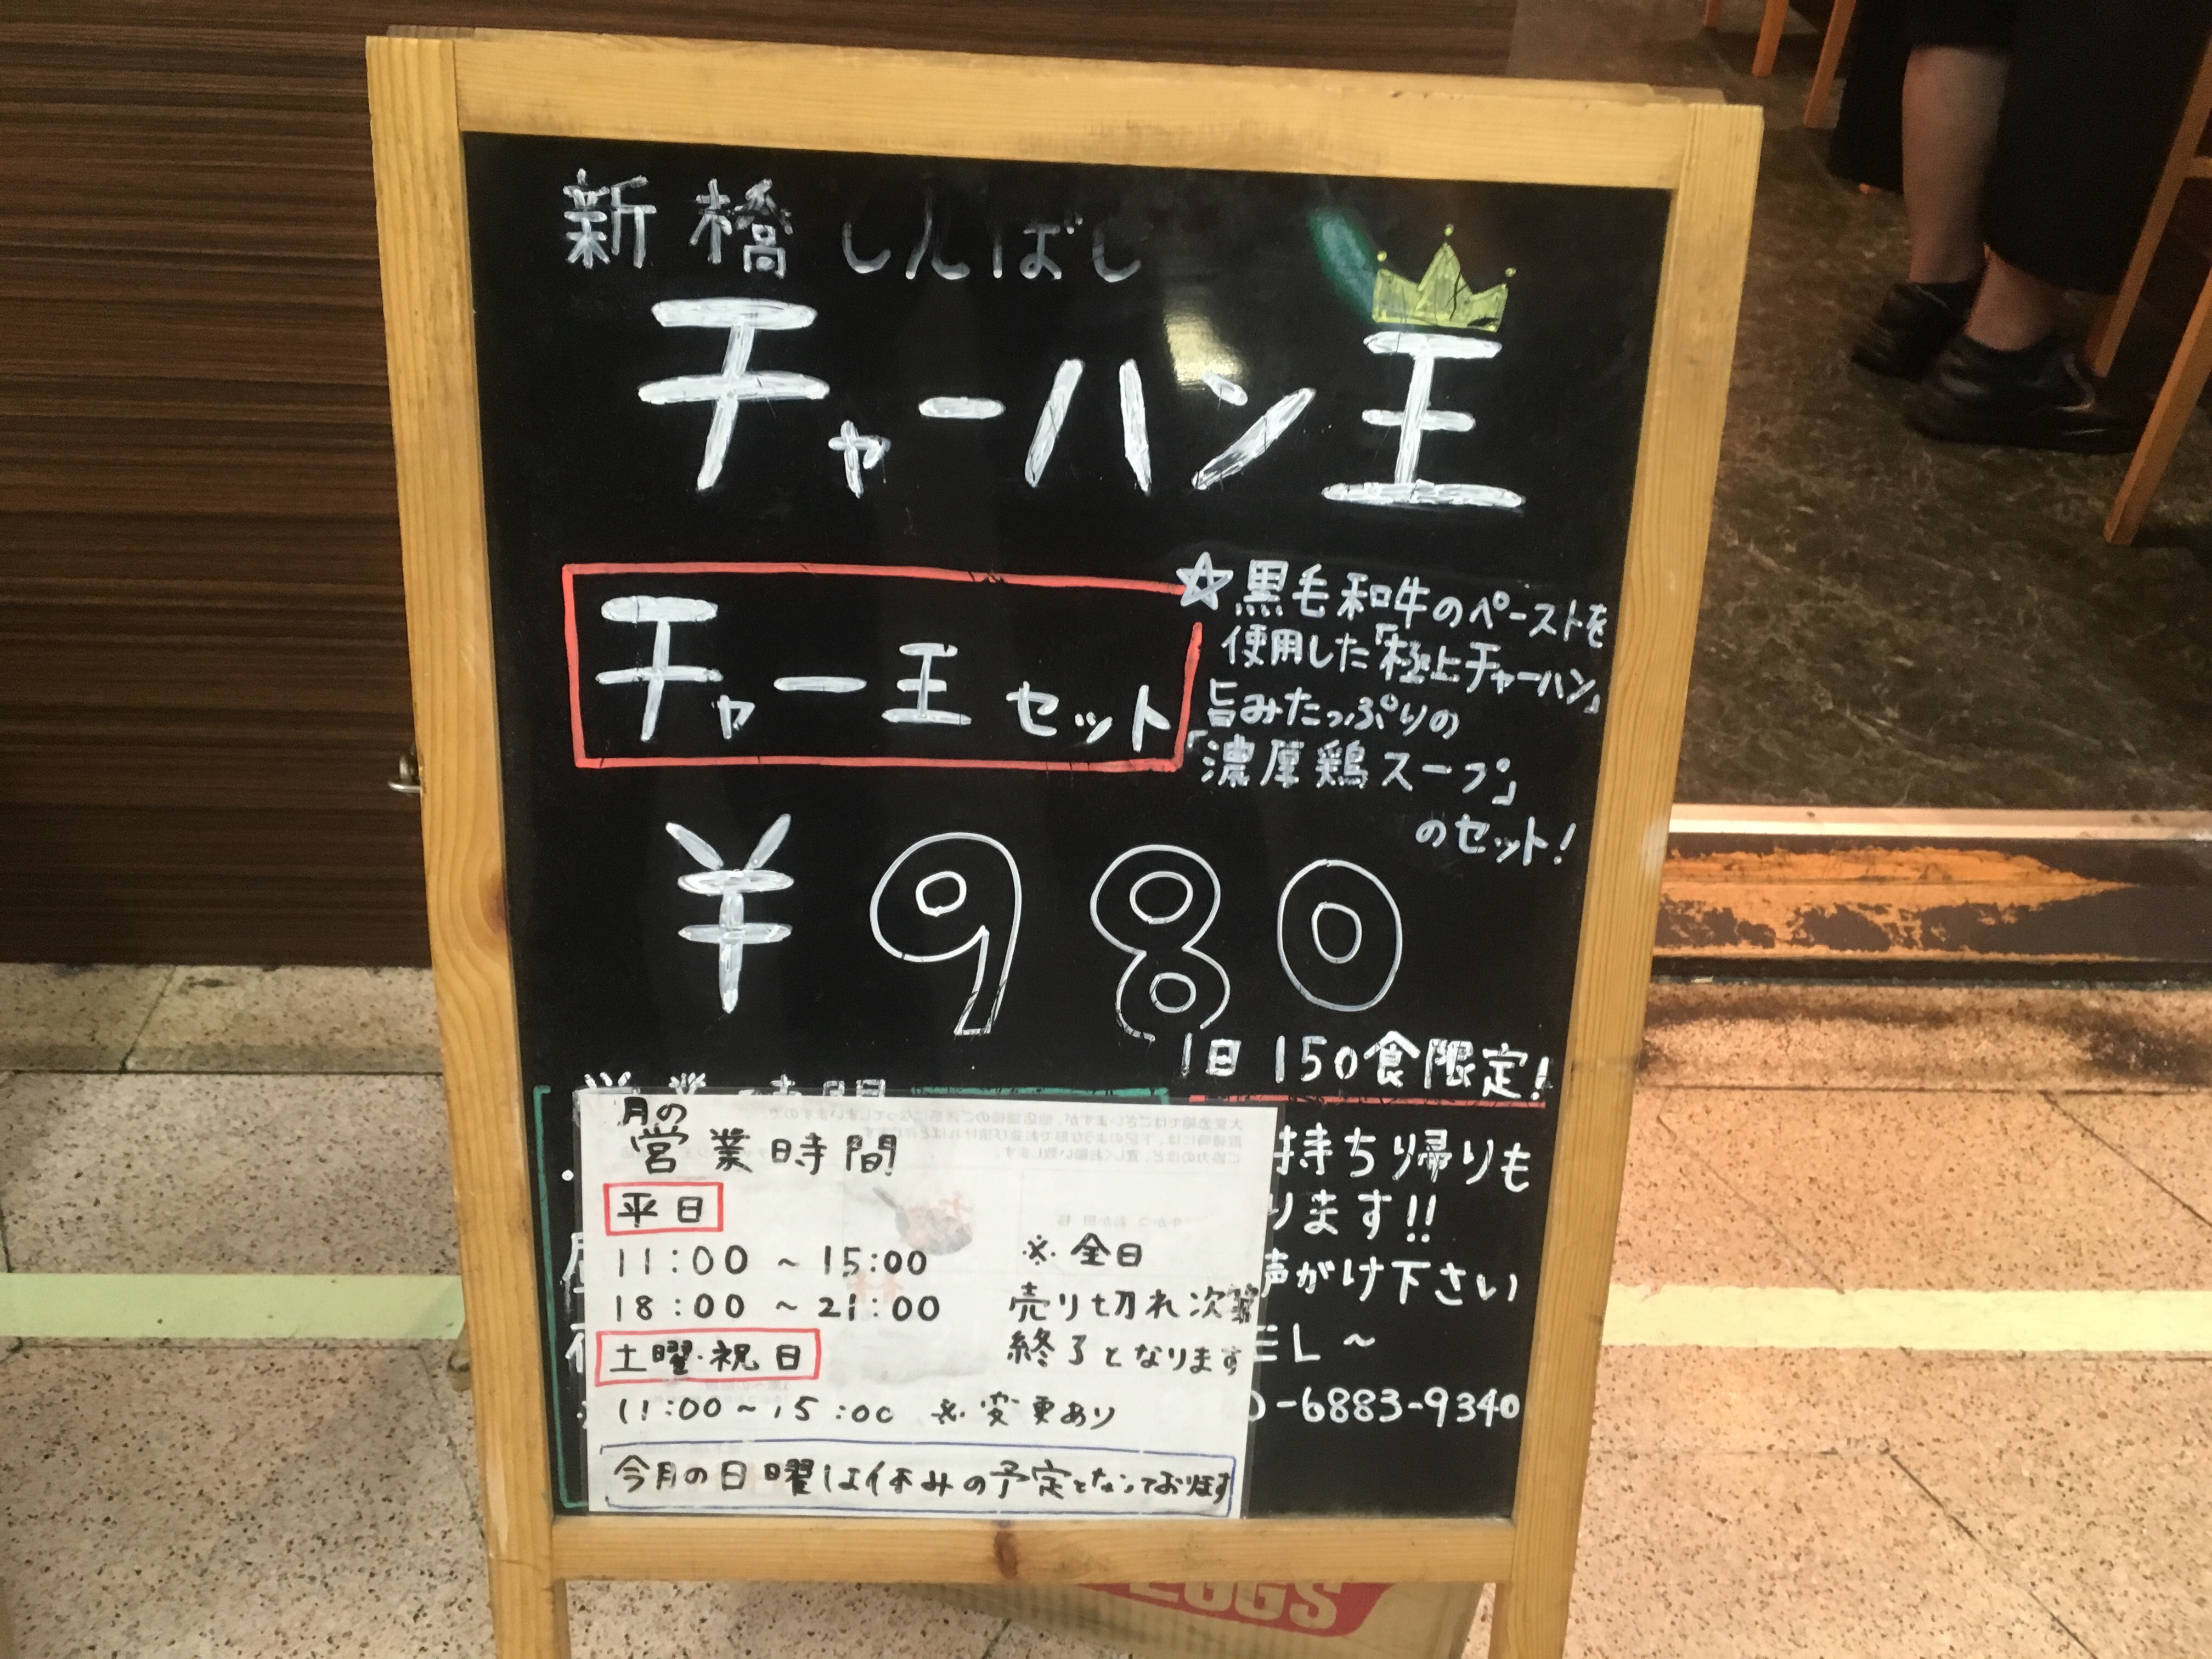 新橋 しんばし
チャーハン王
チャー王 セット
☆黒毛和牛のペーストを
使用した「極上チャーハン」
旨みたっぷりの
「濃厚鶏スープ」
のセット!
¥980
1日 150食限定!
持ち帰りも
ります!!
声がけ下さい
EL~
0-6883-9340
月の
営業時間
平日
11:00 ~ 15:00
18:00 ~ 21:00
※全日
売り切れ次第
終了となります
土曜・祝日
11:00~15:00 ※変更あり
今月の日曜は休みの予定となっております
EGGS